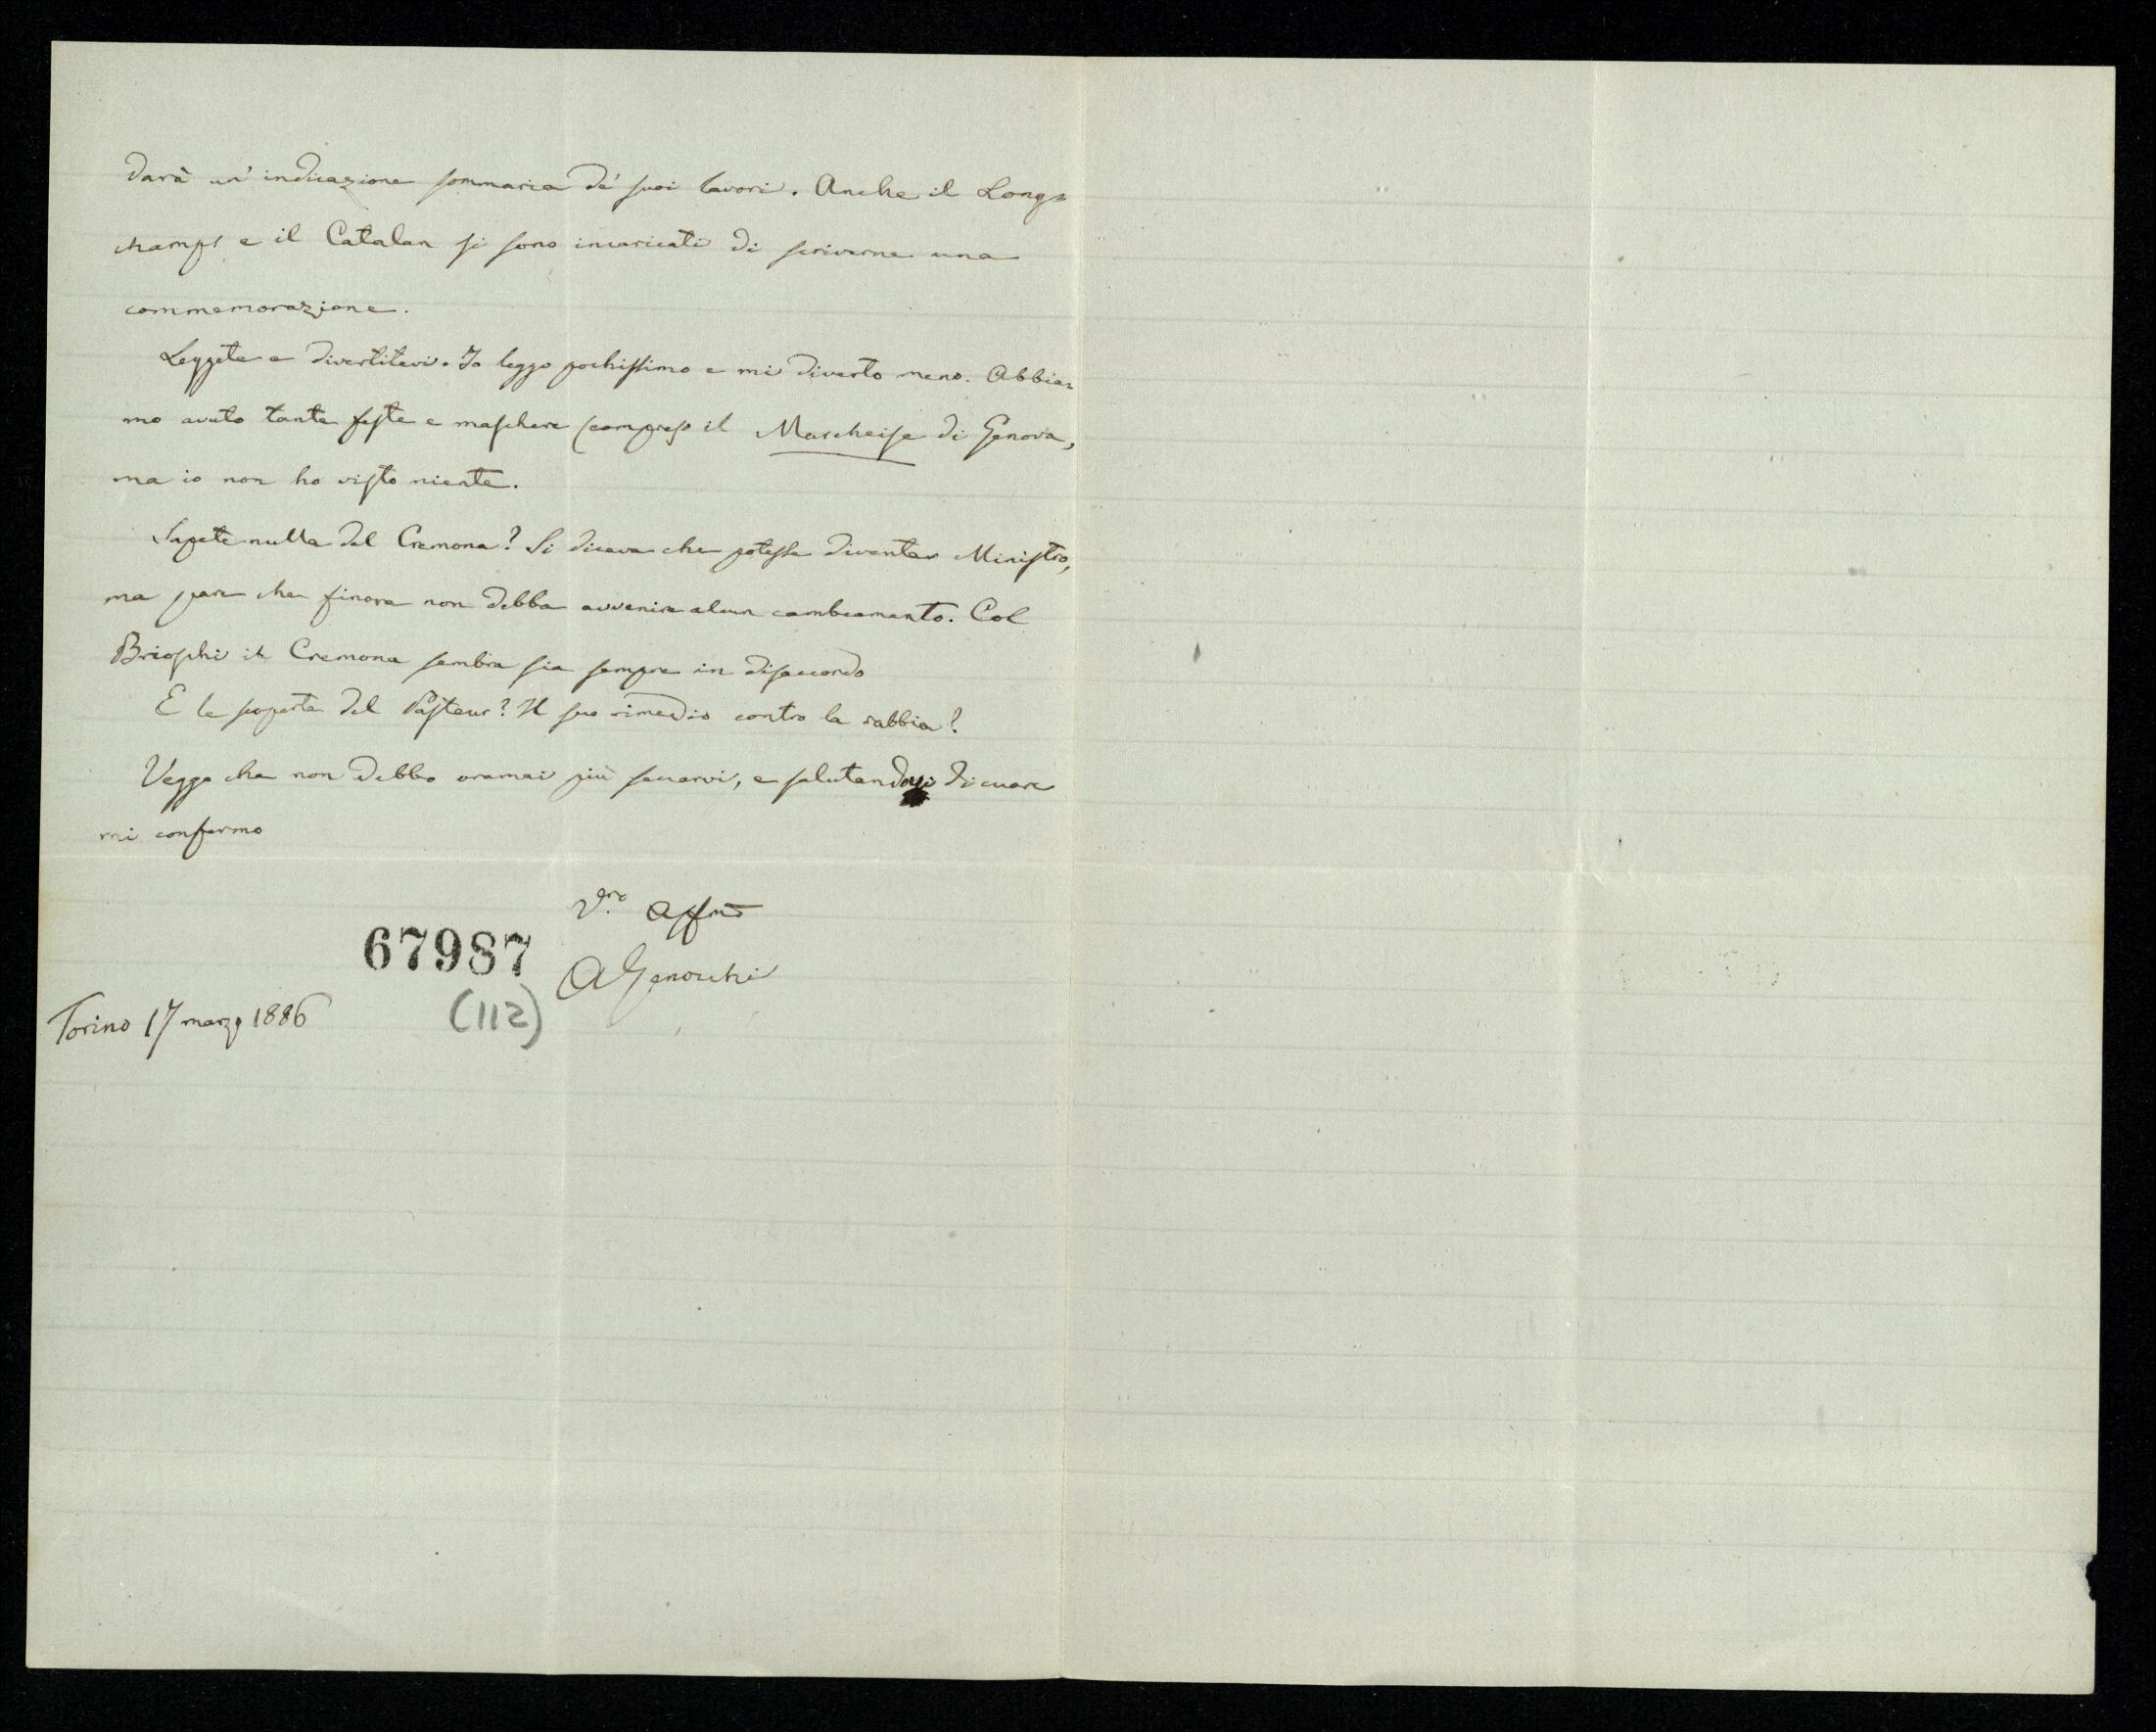 darà un' indicazione sommaria de' suoi lavori. Anche il Long-
champs e il Catalan si sono incaricati di scriverne una
commemorazione.
Leggete e divertitevi. Io leggo pochissimo e mi diverto meno. Abbia-
mo avuto tante feste e maschere (compreso il Marcheise di Genova,
ma io non ho visto niente.
Sapete nulla del Cremona? Si diceva che potesse diventar Ministro,
ma pare che finora non debba avvenire alcun cambiamento. Col
Brioschi il Cremona sembra sia sempre in disaccordo
E le scoperte del Pasteur? Il suo rimedio contro la rabbia?
Veggo che non debbo oramai più seccarvi, e salutandovi di cuore
mi confermo
V.ro Affmo
AGenocchi
67987
(112)
Torino 17 marzo 1886